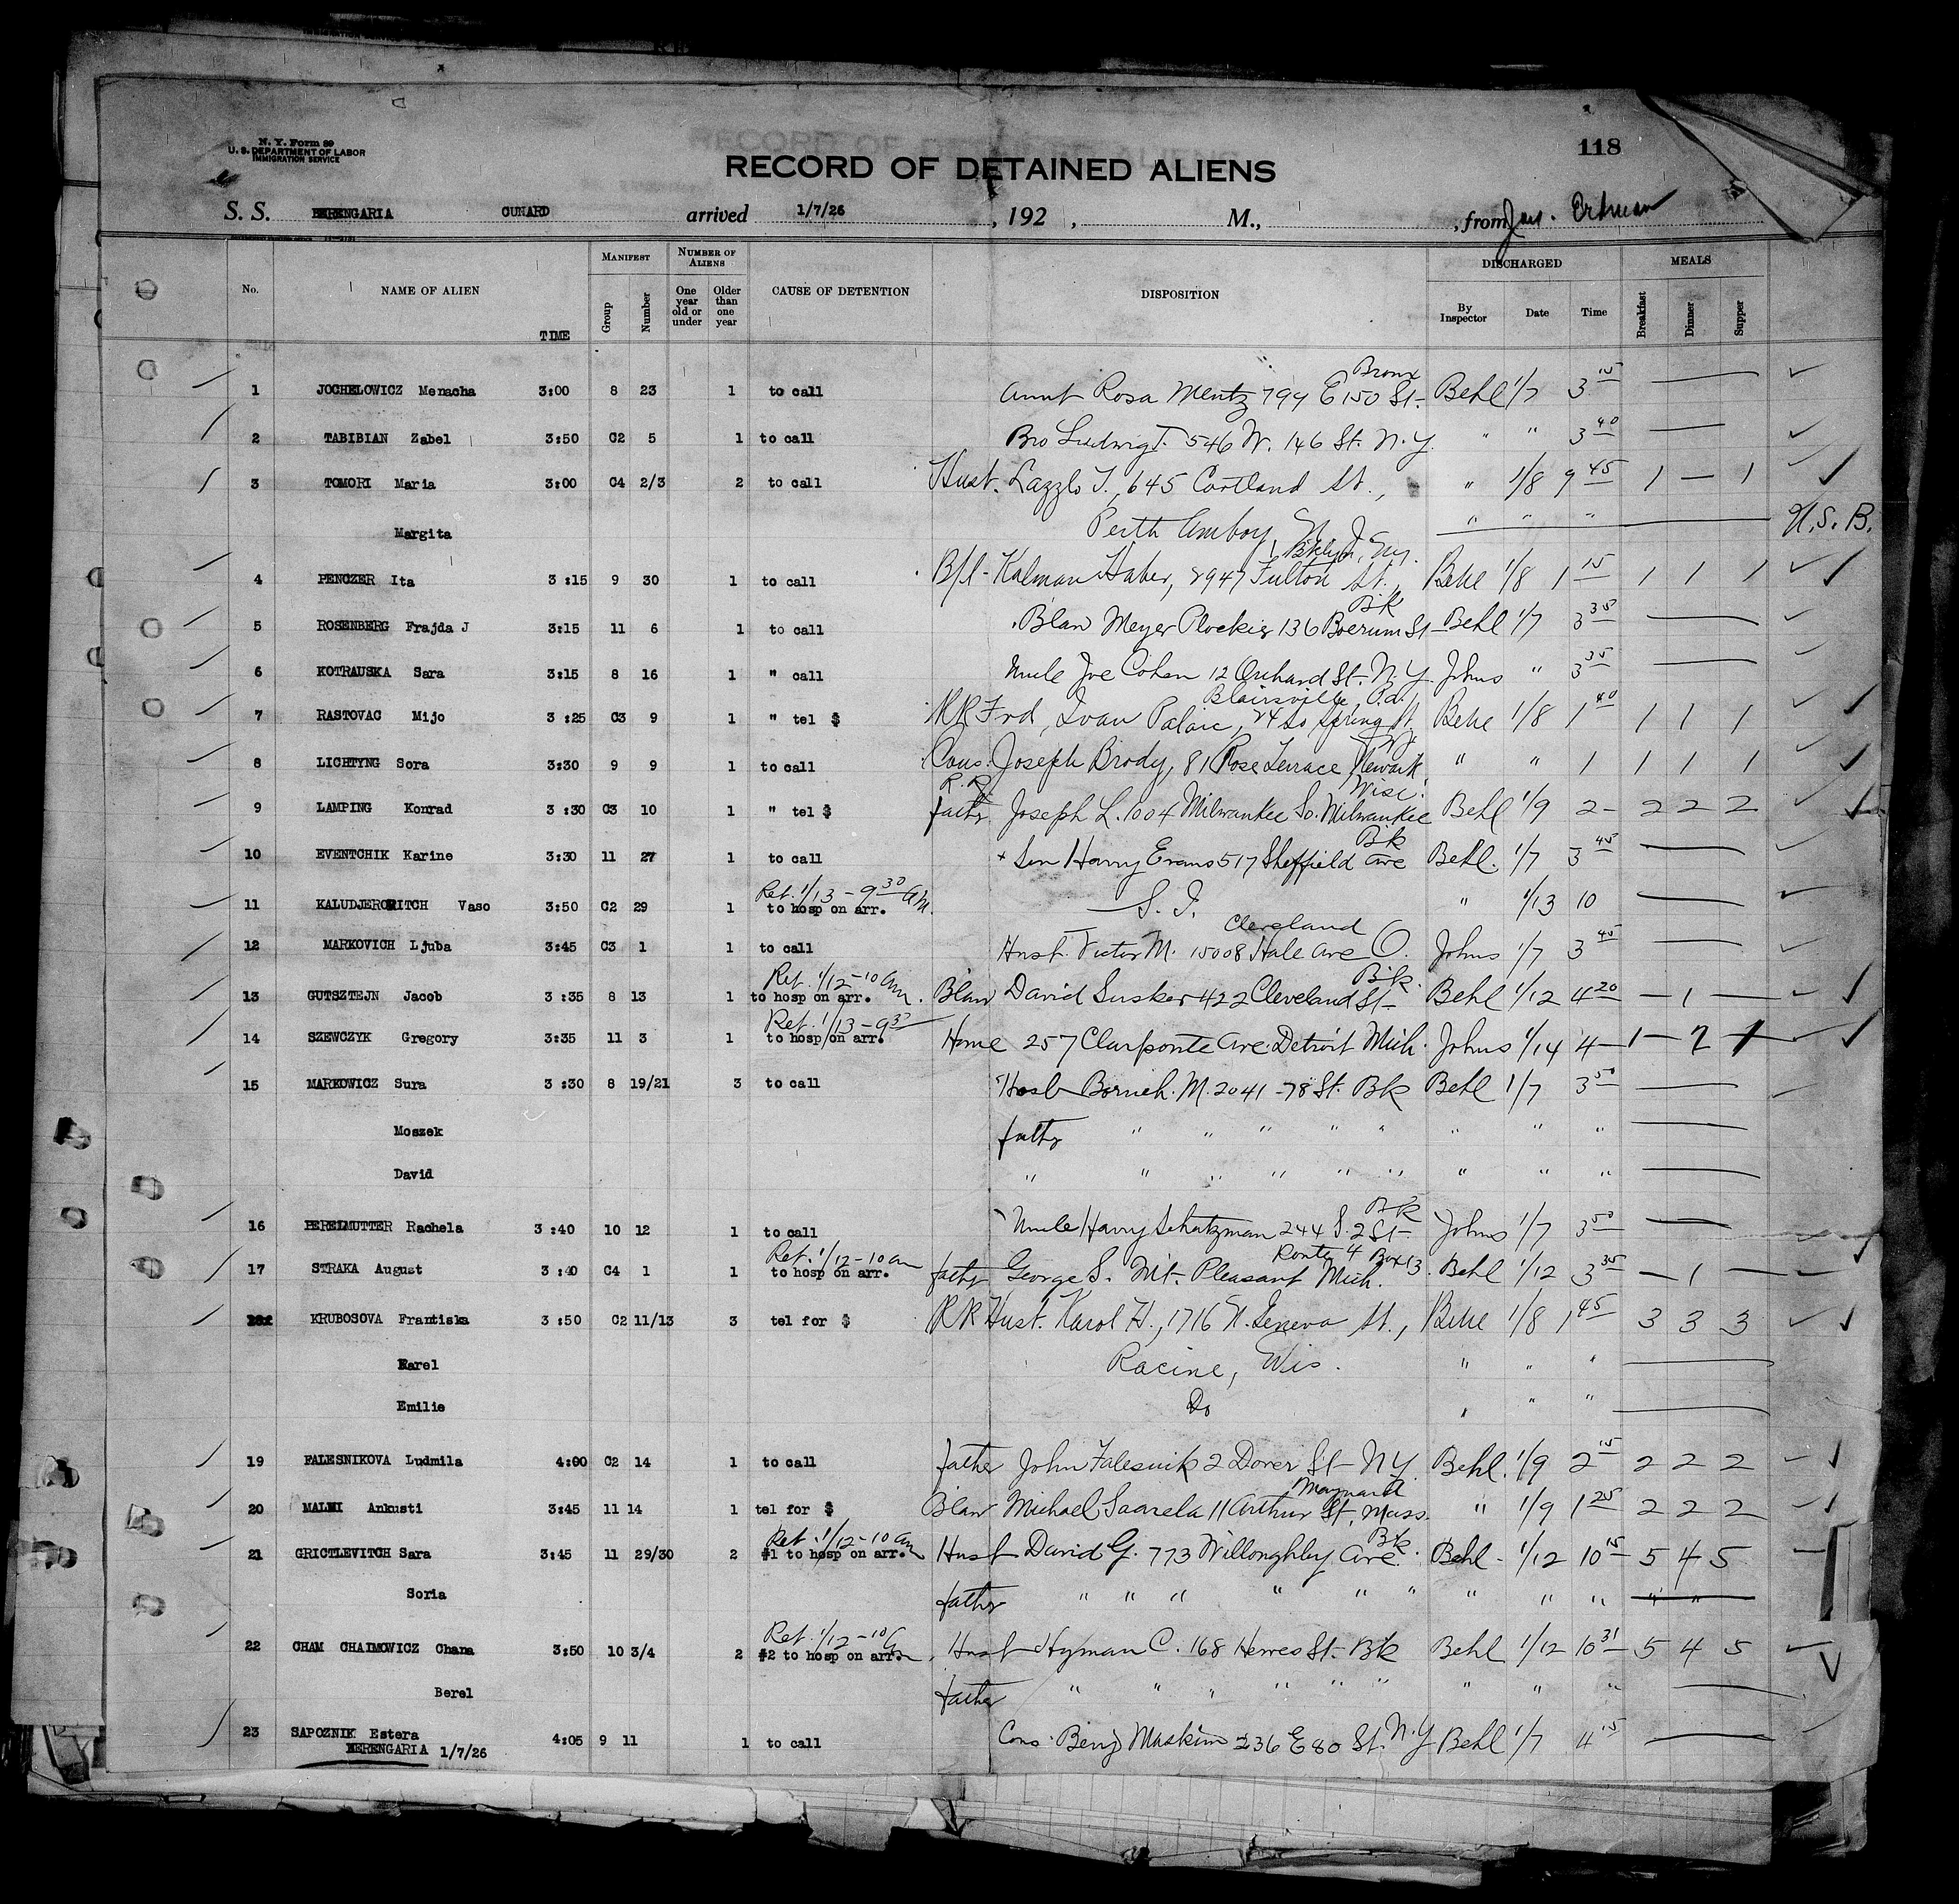 N. Y. Form 89
U. S. DEPARTMENT OF LABOR
IMMIGRATION SERVICE
118
RECORD OF DETAINED ALIENS
S. S. BERENGARIA CUNARD arrived 1/7/26 , 192 , M., , from Erdman
No. NAME OF ALIEN TIME MANIFEST Group Number NUMBER OF ALIENS One year old or under Older than one year CAUSE OF DETENTION DISPOSITION DISCHARGED By Inspector Date Time MEALS Breakfast Dinner Supper
Bronx
1 JOCHELOWICZ Menacha 3:00 8 23 1 to call Aunt Rosa Mentz 794 E 150 St. Behl 1/7 3 15
2 TABIBIAN Zabel 3:50 C2 5 1 to call Bro Ludwig T. 546 W. 146 St. N.Y. " " 3 40
3 TOMORI Maria 3:00 C4 2/3 2 to call Hust. Lazzlo T., 645 Cortland St., " 1/8 9 45 1 — 1
Margita Perth Amboy, N. J. " " " N.S.B.
Bklyn, Ny.
4 PENCZER Ita 3:15 9 30 1 to call B/l - Kalman Haber, 2947 Fulton St., Behl 1/8 1 15 1 1 1
Bk
5 ROSENBERG Frajda J 3:15 11 6 1 to call Blaw Meyer Plockier 136 Boerum St Behl 1/7 3 35
6 KOTRAUSKA Sara 3:15 8 16 1 " call Uncle Joe Cohen 12 Orchard St. N.Y. Johns " 3 35
Blairsville, Pa.
7 RASTOVAC Mijo 3:25 C3 9 1 " tel $ RR Frd, Ivan Palaic, 24 So Spring St, Behl 1/8 1 40 1 1 1
N.J.
8 LICHTYNG Sora 3:30 9 9 1 to call Cous. Joseph Brody, 81 Rose Terrace Newark " " 1 1 1 1
R.R. Wisc.
9 LAMPING Konrad 3:30 C3 10 1 " tel $ father Joseph L. 1004 Milwaukee So. Milwaukee Behl 1/9 2 - 2 2 2
Bk
10 EVENTCHIK Karine 3:30 11 27 1 to call Son Harry Evans 517 Sheffield Ave Behl. 1/7 3 45
Ret. 1/13 - 9 30 AM.
11 KALUDJEROWITCH Vaso 3:50 C2 29 1 to hosp on arr. S. I. " 1/13 10
Cleveland
12 MARKOVICH Ljuba 3:45 C3 1 1 to call Hust. Victor M. 15008 Hale Ave O. Johns 1/7 3 45
Ret. 1/12 - 10 am. Bk.
13 GUTSZTEJN Jacob 3:35 8 13 1 to hosp on arr. Blaw David Susker 422 Cleveland St. Behl 1/12 4 20 — 1 —
Ret. 1/13 - 9 30
14 SZEWCZYK Gregory 3:35 11 3 1 to hosp on arr. Home 257 Clairponte Ave. Detroit Mich. Johns 1/14 4 — 1 - 2 1
15 MARKOWICZ Sura 3:30 8 19/21 3 to call Husb Boruch. M. 2041 - 78 St. Bk Behl 1/7 3 50
Moszek father " " " " " " " "
David " " " " " " " " "
Bk
16 PERELMUTTER Rachela 3:40 10 12 1 to call Uncle Harry Schatzman 244 S. 2 St Johns 1/7 3 50
Ret. 1/12 - 10 am Route 4 Box 13
17 STRAKA August 3:40 C4 1 1 to hosp on arr. father George S. Mt. Pleasant Mich. Behl 1/12 3 35 — 1 —
18 KRUBOSOVA Frantiska 3:50 C2 11/13 3 tel for $ RR Hust. Karol H., 1716 N. Geneva St., Behl 1/8 1 45 3 3 3
Karel Racine, Wis. " " "
Emilie Do " " "
19 FALESNIKOVA Ludmila 4:00 C2 14 1 to call father John Falesnik 2 Dover St NY. Behl. 1/9 2 15 2 2 2
Maynard
20 MALMI Ankusti 3:45 11 14 1 tel for $ Blaw Michael Saarela 11 Arthur St, Mass. " 1/9 1 25 2 2 2
Ret. 1/12 - 10 am Bk.
21 GRICTLEVITCH Sara 3:45 11 29/30 2 #1 to hosp on arr. Hust David G. 773 Willoughby Ave. Behl - 1/12 10 15 5 4 5
Soria father " " " " " " " " "
Ret. 1/12 - 10
22 CHAM CHAIMOWICZ Chana 3:50 10 3/4 2 #2 to hosp on arr. Hust Hyman C. 168 Hewes St. Bk Behl 1/12 10 31 5 4 5
Berel father " " " " " " " " "
23 SAPOZNIK Estera 4:05 9 11 1 to call Cous. Benj Maskin 236 E 80 St. N.Y Behl 1/7 4 15
BERENGARIA 1/7/26